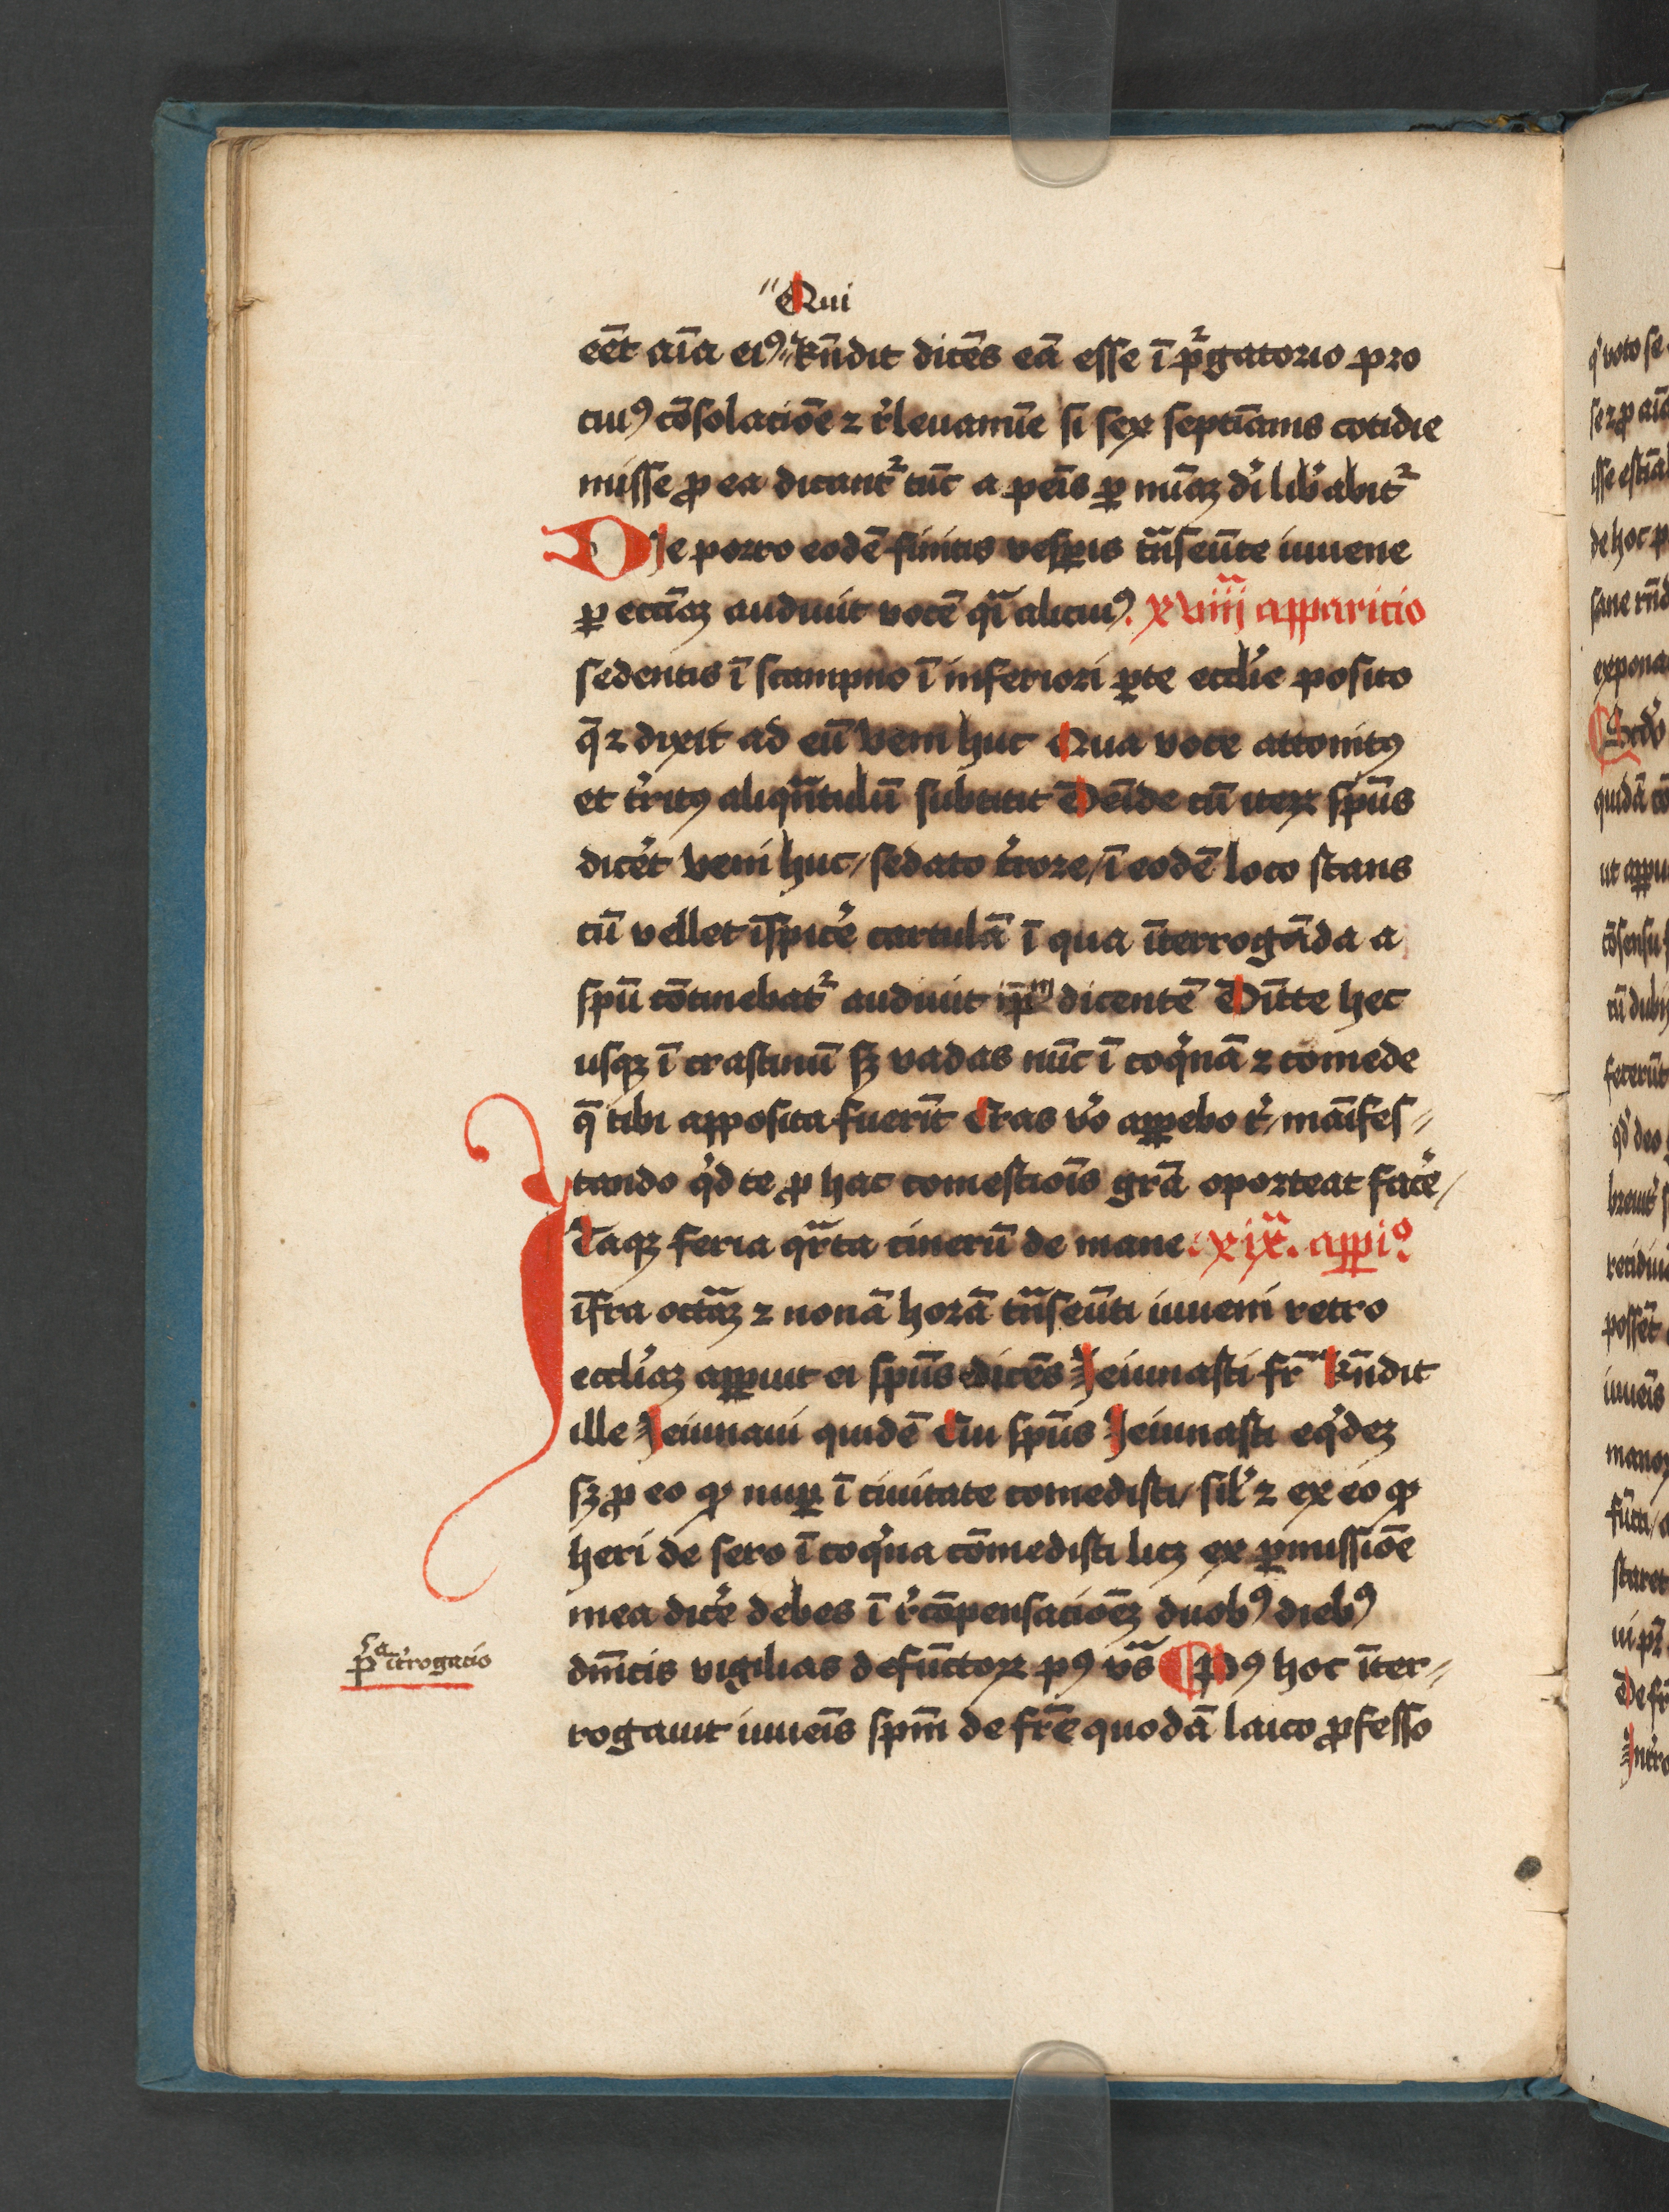 "Qui
eēt aīa eiꝰ" Rn̄dit dicēs eā esse ī pᷣgatorio pro
cuiꝰ cōsolacōe ⁊ r̓leuamīe si sex septīanis cotidie
misse ꝓ ea dicantᷣ tūc a peīs ꝑ mīaꝫ di̓ lib̓abitᷣ
Die porro eodē finitis vesꝑis tn̄seūte iuuene
ꝑ eccīaꝫ audiuit vocē qͣi alicuiꝰ. xviiij apparicio
sedentis ī scampno ī inferiori ꝑte ecclīe posito
q̄ ⁊ dixit ad eū Veni huc Qua voce attonitꝰ
et t̓ritꝰ aliqn̄tulū substitit Deīde cū iteꝝ spūs
dic̓et Veni huc / sedato t̓rore / ī eodē loco stans
cū vellet īspic̓e cartulā ī qua īterrogāda a
spū cōtinebatᷣ audiuit ip̄m dicentē Dītte hec
usqꝫ ī crastinū sꝫ vadas nūc ī coq̓nā ⁊ comede
q̄ tibi apposita fuerīt Cras v̓o aꝑebo t̓ / māifes〃
tando q̓d te ꝓ hac comestiōis grā oporteat fac̓e /
Itaqꝫ feria qr̄ta cinerū de mane. xix. aꝑiº
īfra octāꝫ ⁊ nonā horā tn̄seūti iuueni retro
ecclīaꝫ aꝑuit ei spūs dicēs Jeiunasti fr̄ Rn̄dit
ille Jeiunaui quidē Cui spūs Jeiunasti eq̓deꝫ
sꝫ ꝓ eo ꝙ nuꝑ ī ciuitate comedisti / sil̓ ⁊ ex eo ꝙ
heri de sero ī coq̓na cōmedisti licꝫ ex ꝑmissiōe
mea dic̓e debes ī r̓cōpensaciōeꝫ duobꝰ diebꝰ
dn̄icis vigilias defūctoꝝ pꝰ vs̄ ¶ Pꝰ hoc īter〃
pͣ īt̓rogacio
rogauit iuueīs spm̄ de fr̄e quodā laico ꝓfesso